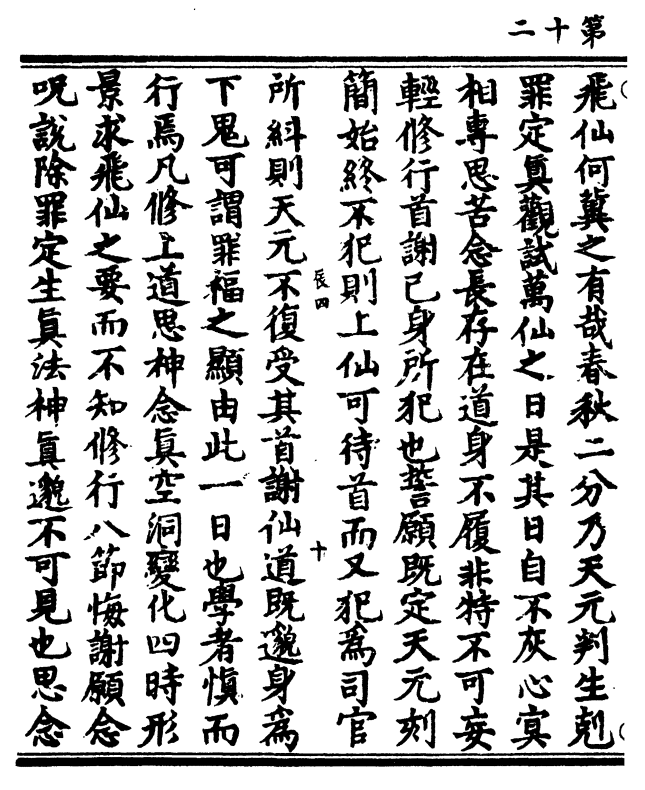 第十二
飛仙何冀之有哉春秋二分乃天元判生剋
罪定眞觀試萬仙之日是其日自不灰心寘
相專思苦念長存在道身不履非特不可妄
輕修行首謝己身所犯也誓願既定天元刻
簡始終不犯則上仙可待首而又犯爲司官
辰四
十
所糾則天元不復受其首謝仙道既邈身爲
下鬼可謂罪福之顯由此一日也學者愼而
行焉凡修上道思神念眞空洞變化四時形
景求飛仙之要而不知修行八節悔謝願念
呪說除罪定生眞法神眞邈不可見也思念